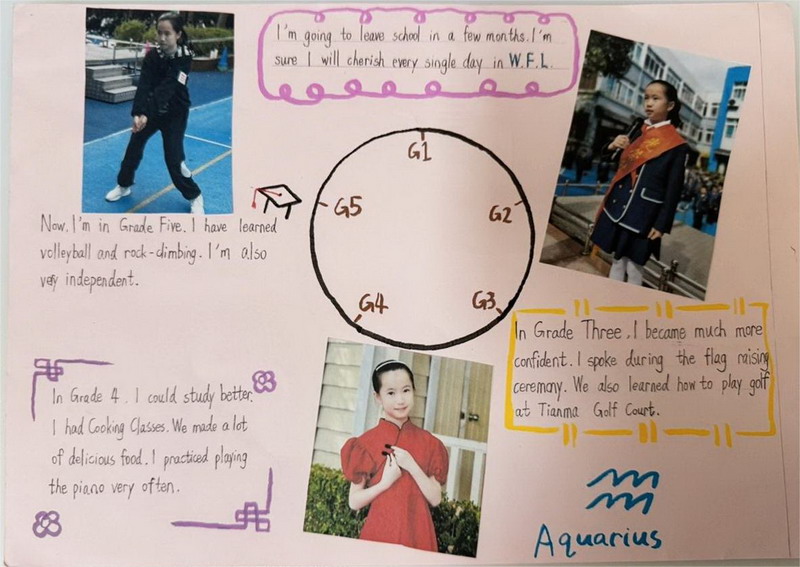 I'm going to leave school in a few months. I'm
sure I will cherish every single day in W.F.L.
G1
G2
G3
G4
G5
Now, I'm in Grade Five. I have learned
volleyball and rock-climbing. I'm also
very independent.
In Grade Three, I became much more
confident. I spoke during the flag raising
ceremony. We also learned how to play golf
at Tianma Golf Court.
In Grade 4, I could study better.
I had Cooking Classes. We made a lot
of delicious food. I practiced playing
the piano very often.
Aquarius